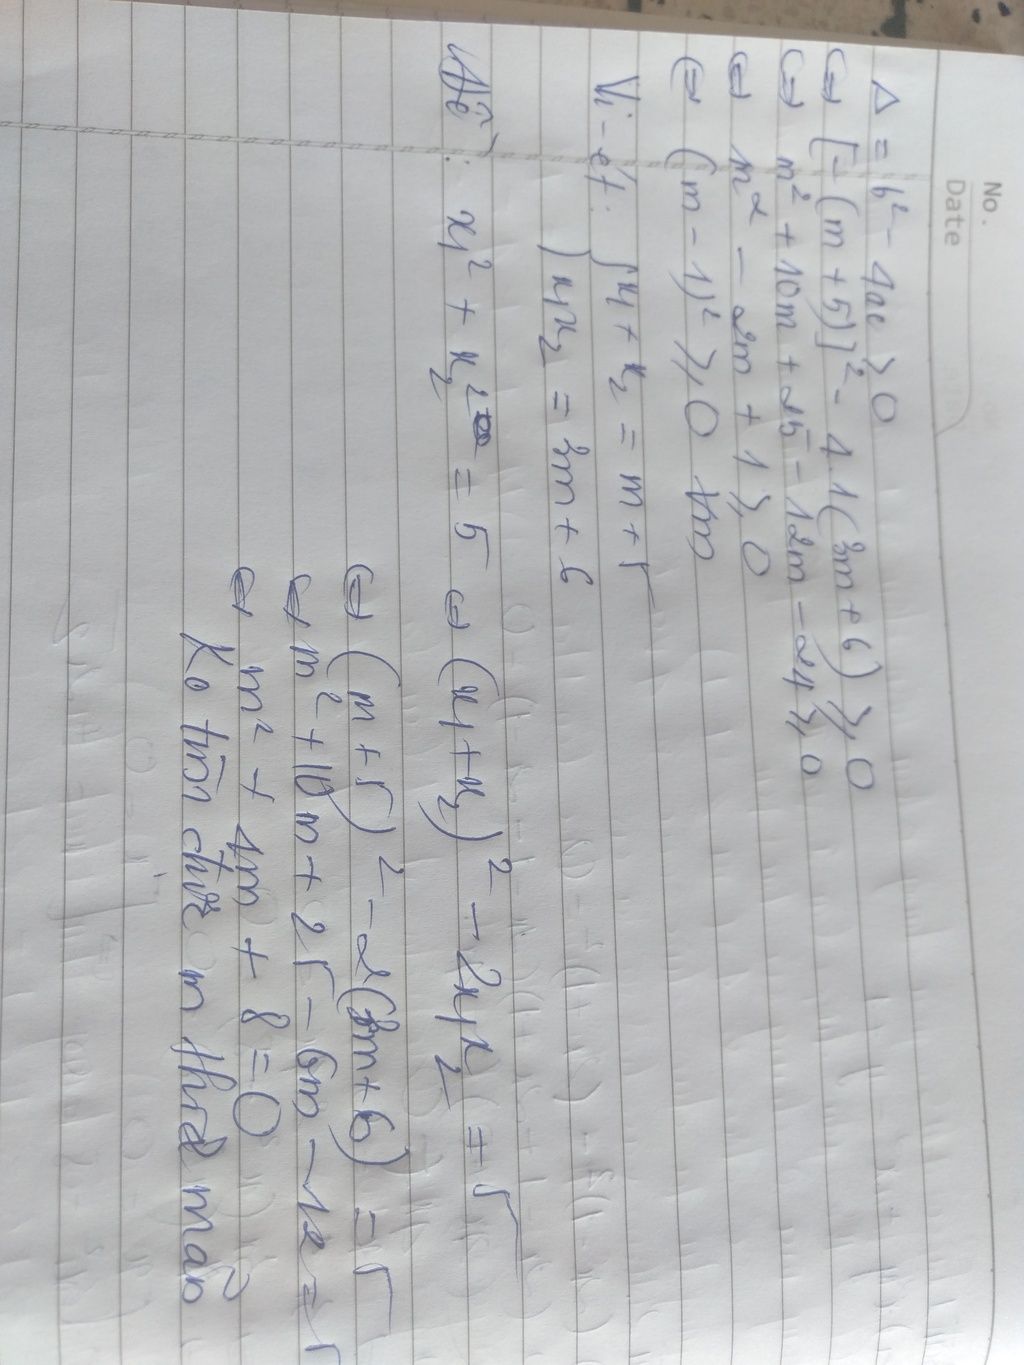 No.
Date
Δ = b² - 4ac ⩾ 0
⇔ [-(m + 5)]² - 4.1(3m + 6) ⩾ 0
⇔ m² + 10m + 25 - 12m - 24 ⩾ 0
⇔ m² - 2m + 1 ⩾ 0
⇔ (m - 1)² ⩾ 0 ∀m
Vi-ét: { x₁ + x₂ = m + 5
x₁x₂ = 3m + 6
Để: x₁² + x₂² = 5 ⇔ (x₁ + x₂)² - 2x₁x₂ = 5
⇔ (m + 5)² - 2(3m + 6) = 5
⇔ m² + 10m + 25 - 6m - 12 = 5
⇔ m² + 4m + 8 = 0
Ko tìm được m thỏa mãn